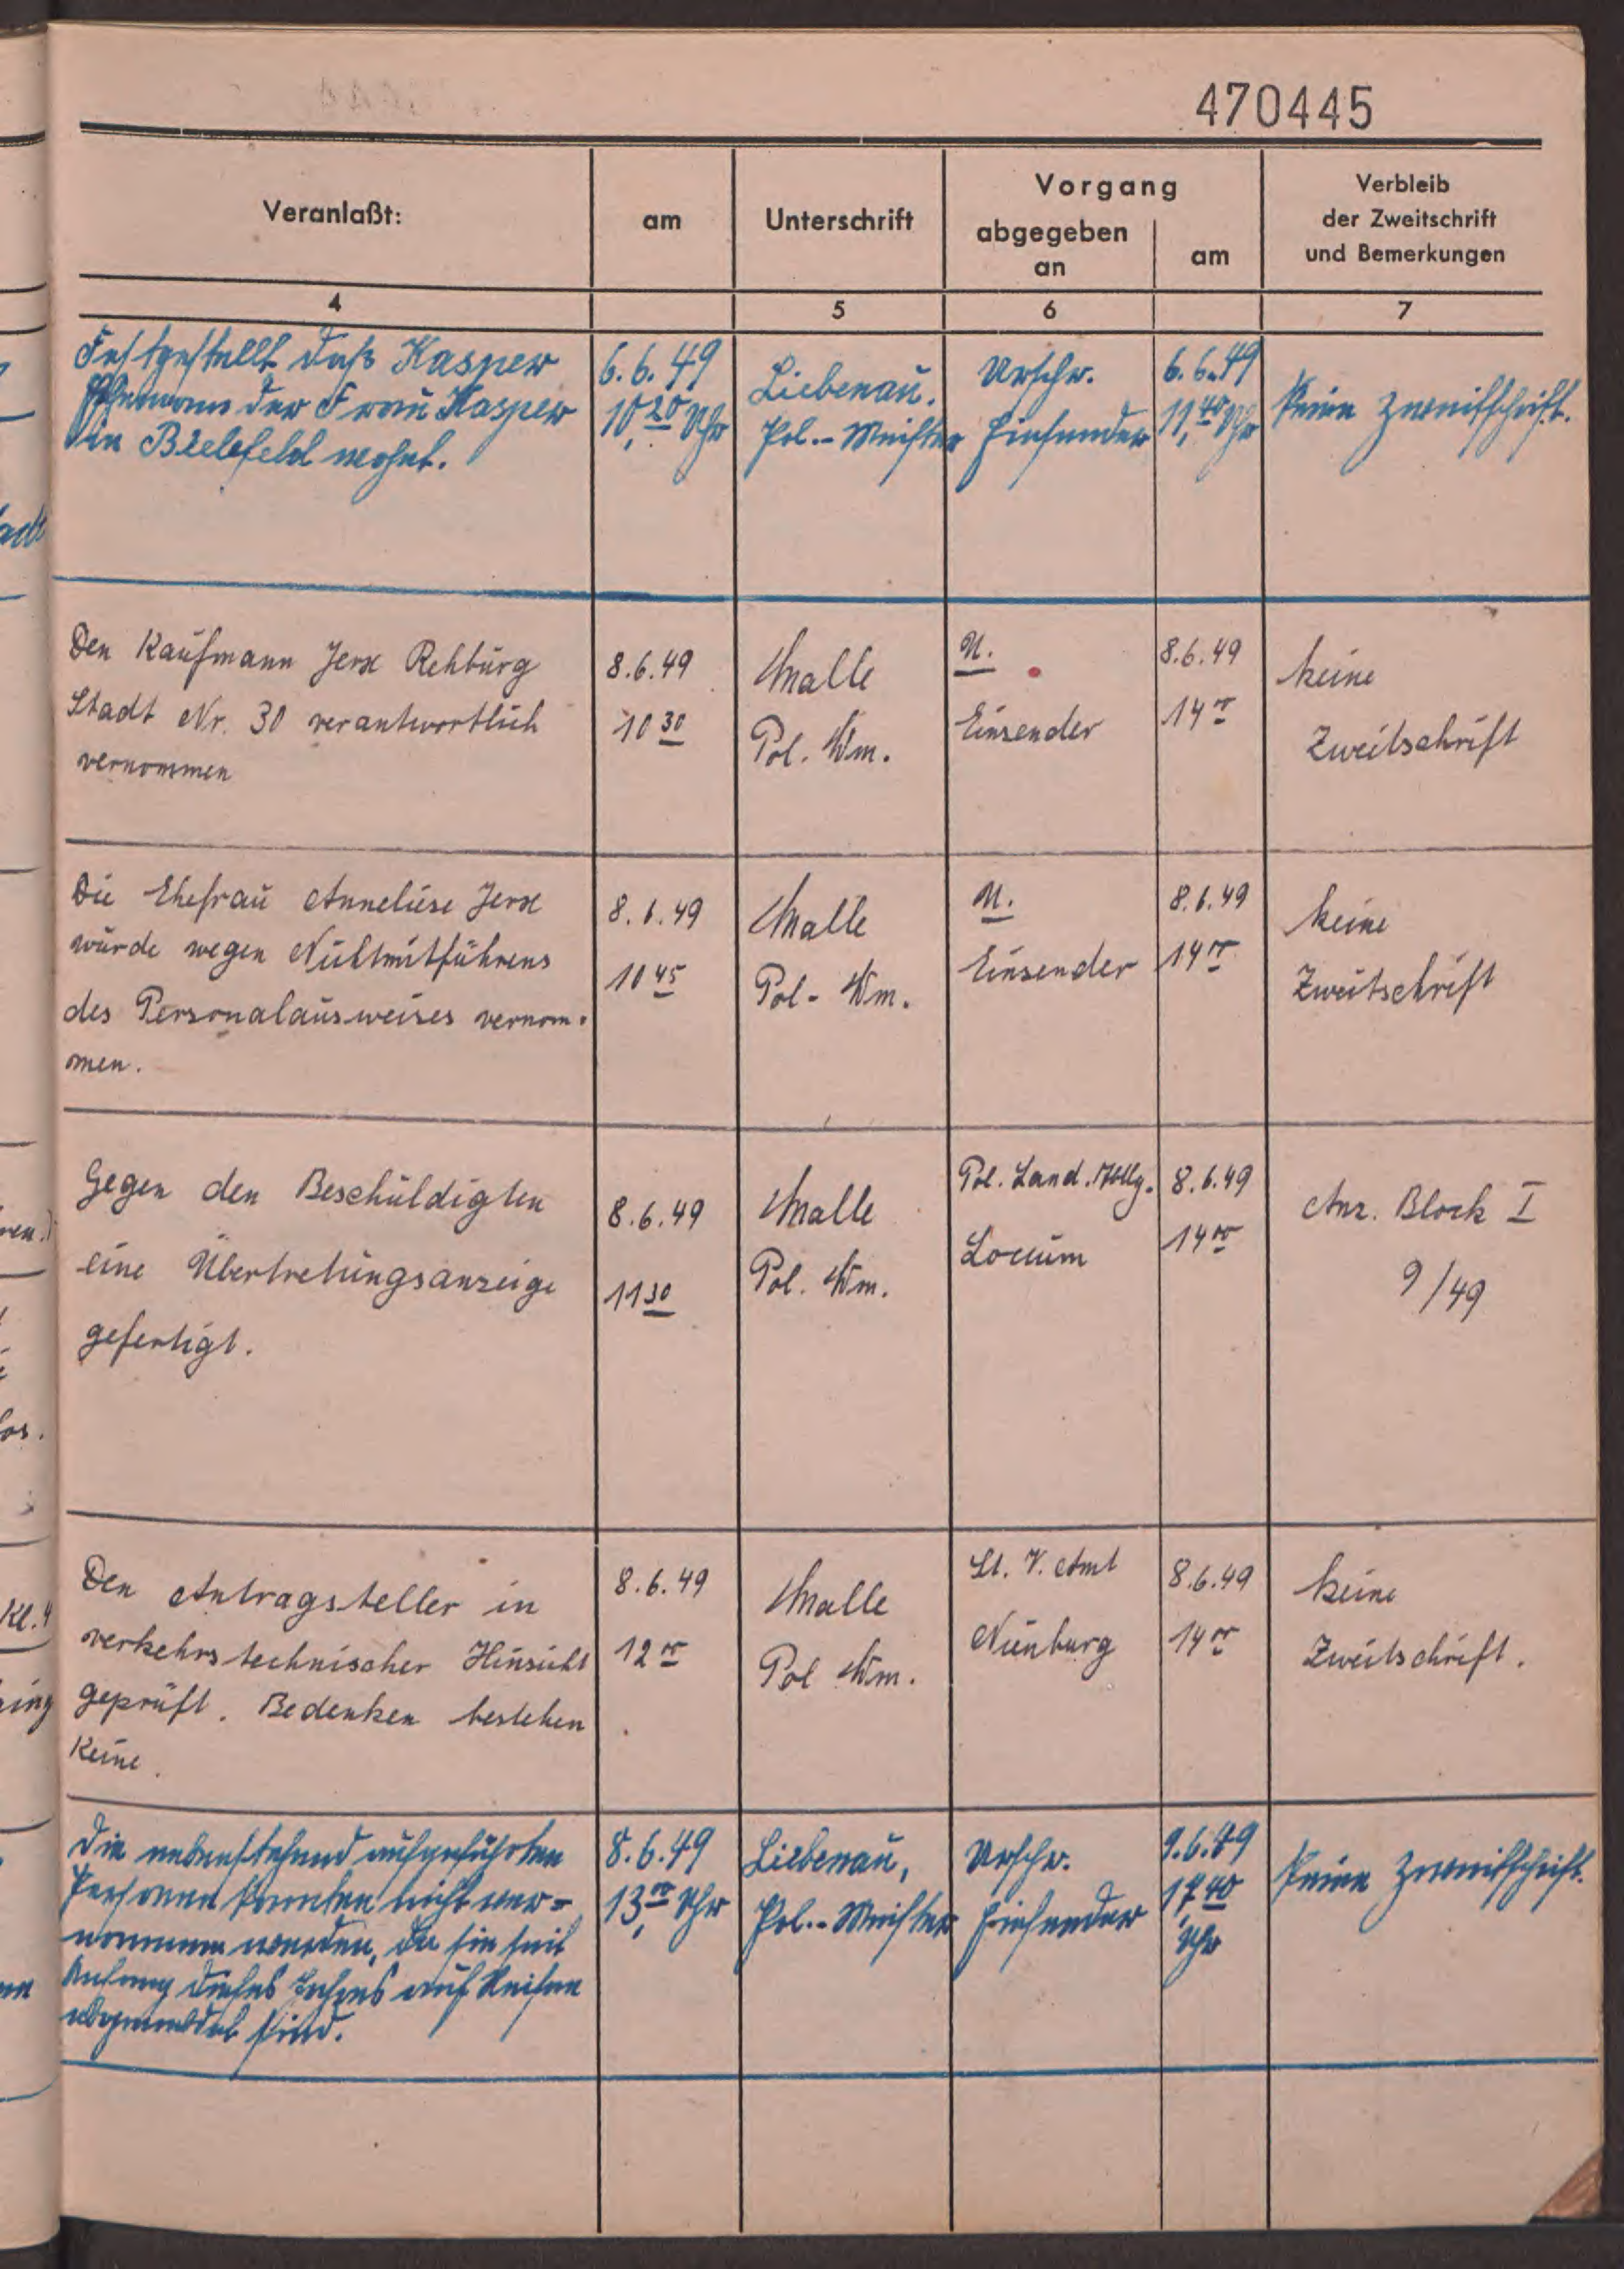 470445
Veranlaßt:
am
Unterschrift
Vorgang
abgegeben
an
am
Verbleib
der Zweitschrift
und Bemerkungen
4
5
6
7
Festgestellt daß Kasper
Ehemann der Frau Kasper
in Bielefeld wohnt.
6.6.49
10,20 Uhr
Liebenau.
Pol.-Meister
Urschr.
Einsender
6.6.49
11,40 Uhr
Keine Zweitschrift.
Den Kaufmann Jerx Rehburg
Stadt Nr. 30 verantwortlich
vernommen
8.6.49
10 30
Malle
Pol. Wm.
U.
Einsender
8.6.49
14 00
keine
Zweitschrift
Die Ehefrau Anneliese Jerx
wurde wegen Nichtmitführens
des Personalausweises vernom-
men.
8.6.49
10 45
Malle
Pol- Wm.
U.
Einsender
8.6.49
14 00
keine
Zweitschrift
Gegen den Beschuldigten
eine Übertretungsanzeige
gefertigt.
8.6.49
11 30
Malle
Pol. Wm.
Pol. Land. Abtlg.
Loccum
8.6.49
14 00
Anz. Block I
9/49
Den Antragsteller in
verkehrstechnischer Hinsicht
geprüft. Bedenken bestehen
Keine.
8.6.49
12 00
Malle
Pol Wm.
St. V. Amt
Nienburg
8.6.49
14 00
keine
Zweitschrift.
Die nebenstehend aufgeführten
Personen konnten nicht ver-
nommen werden, da sie seit
Anfang dieses Jahres auf Reisen
abgemeldet sind.
8.6.49
13,00 Uhr
Liebenau,
Pol.-Meister
Urschr.
Einsender
9.6.49
17,40
Uhr
Keine Zweitschrift.